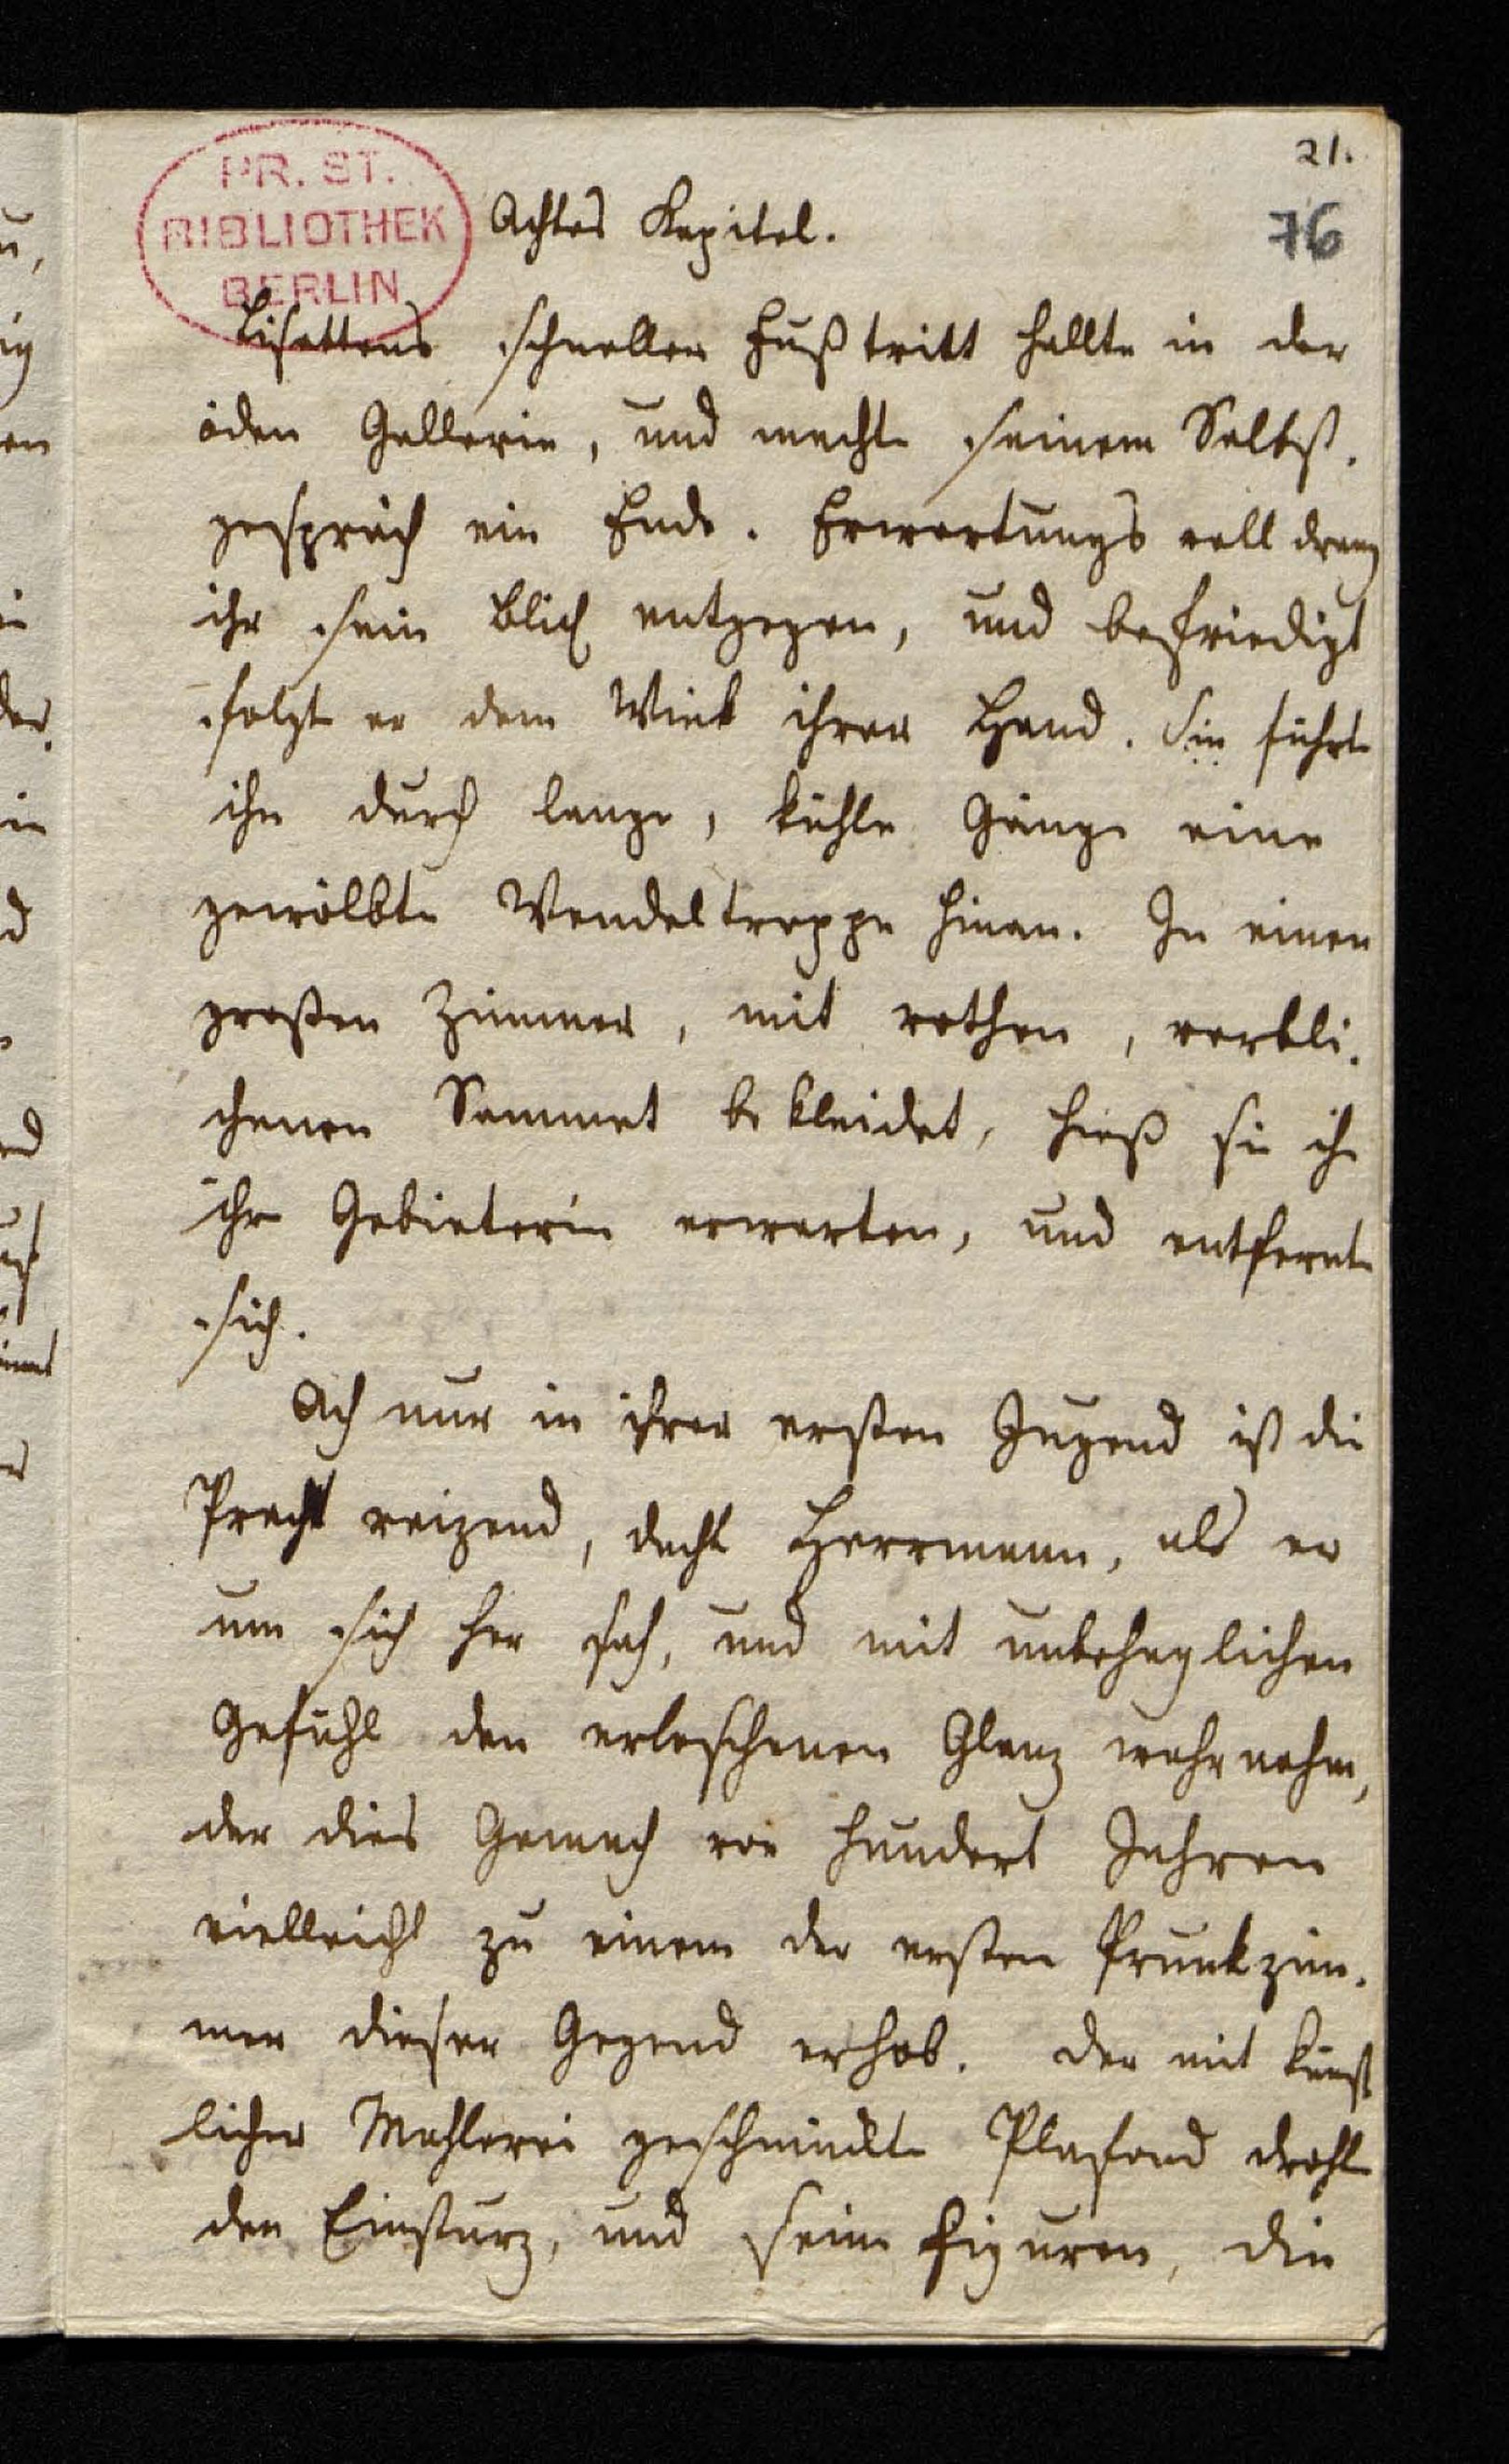 21.
76
PR. ST.
BIBLIOTHEK
BERLIN
Achtes Kapitel.
Lisettens schneller Fußtritt hallte in der
öden Gallerie, und machte seinem Selbst-
gespräch ein Ende. Erwartungs voll drang
ihr sein Blick entgegen, und befriedigt
folgte er dem Wink ihrer Hand. Sie führte
ihn durch lange, kühle Gänge eine
gewölbte Wendeltreppe hinan. In einen
großen Zimmer, mit rothen, verbli-
chenen Sammet bekleidet, hieß sie ihn
ihre Gebieterin erwarten, und entfernte
sich.
Ach nur in ihrer ersten Jugend ist die
Pracht reizend, dachte Herrmann, als er
um sich her sah, und mit unbehaglichen
Gefühl den erloschenen Glanz wahrnahm,
der dies Gemach vor hundert Jahren
vielleicht zu einem der ersten Prunkzim-
mer dieser Gegend erhob. Der mit künst
licher Mahlerei geschmückte Plafond drohte
den Einsturz, und seine Figuren, die